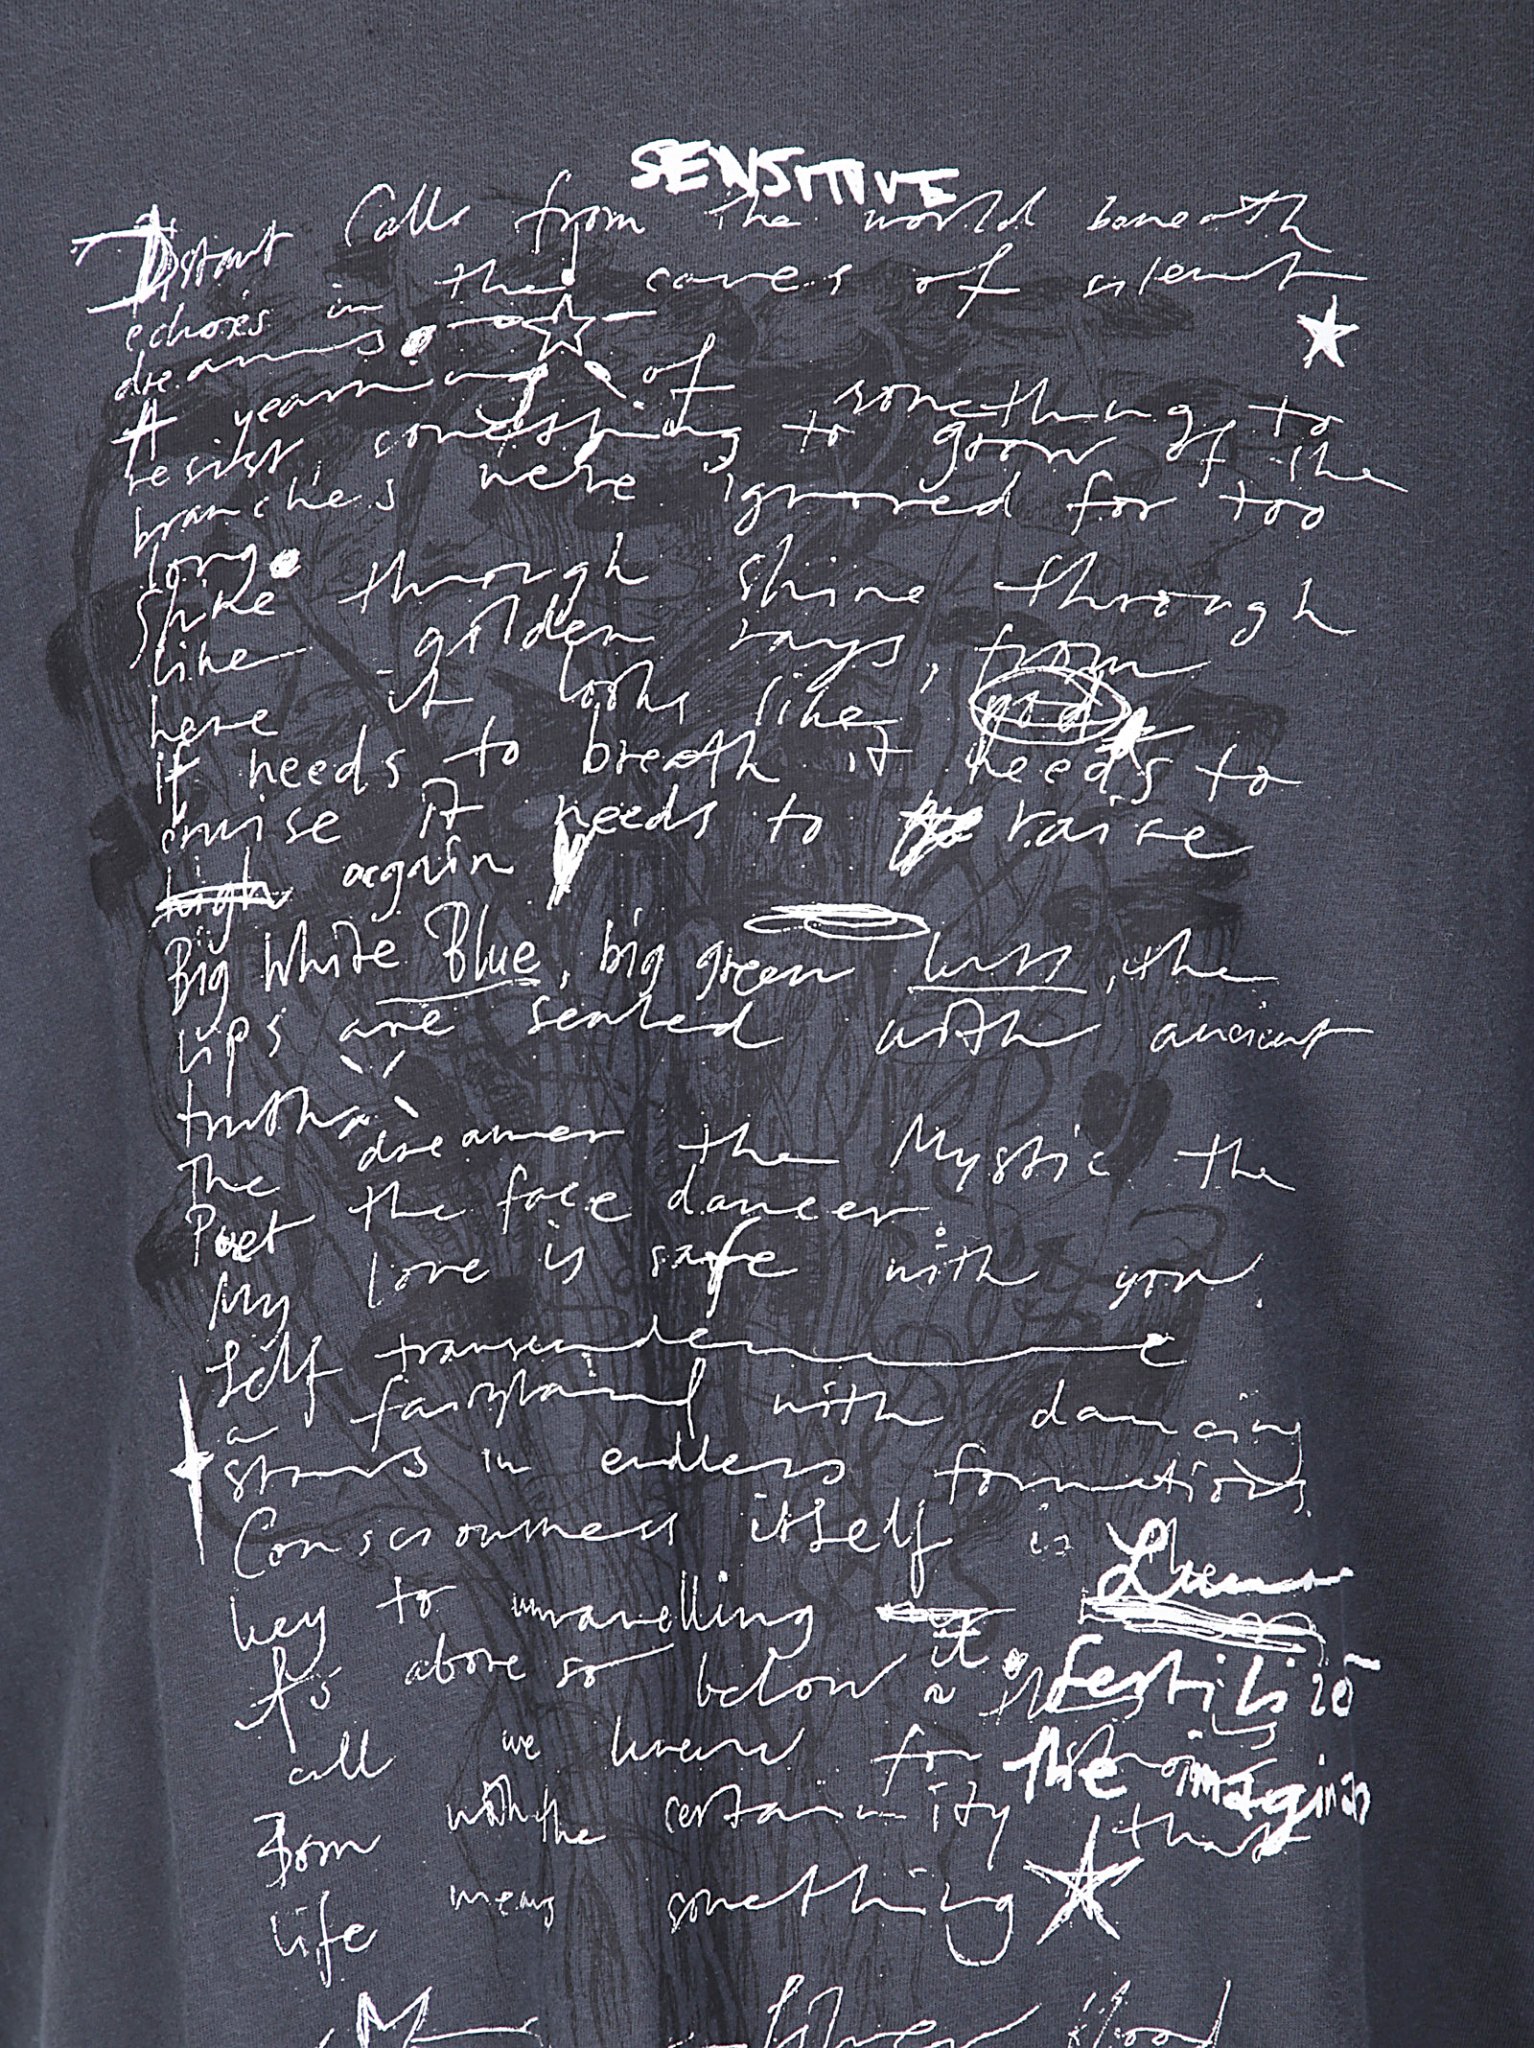 SENSITIVE
Distant Calls from the world beneath
echoes in the caves of silent
dreams.
A yearning of something to
resist something to grow of the
branches were ignored for too
long.
Shine through shine through
like golden rays, from
here it looks like
it needs to breath it needs to
cruise it needs to raise
high again
Big White Blue, big green, the
lips are sealed with ancient
truths
The dreamer the Mystic the
Poet the face dancer.
My love is safe with you.
Self transcendence
a fairyland with dancing
stars in endless formations.
Consciousness itself is
key to unravelling it.
As above so below
the imagin
call we for
Born with the certainity that
life means something